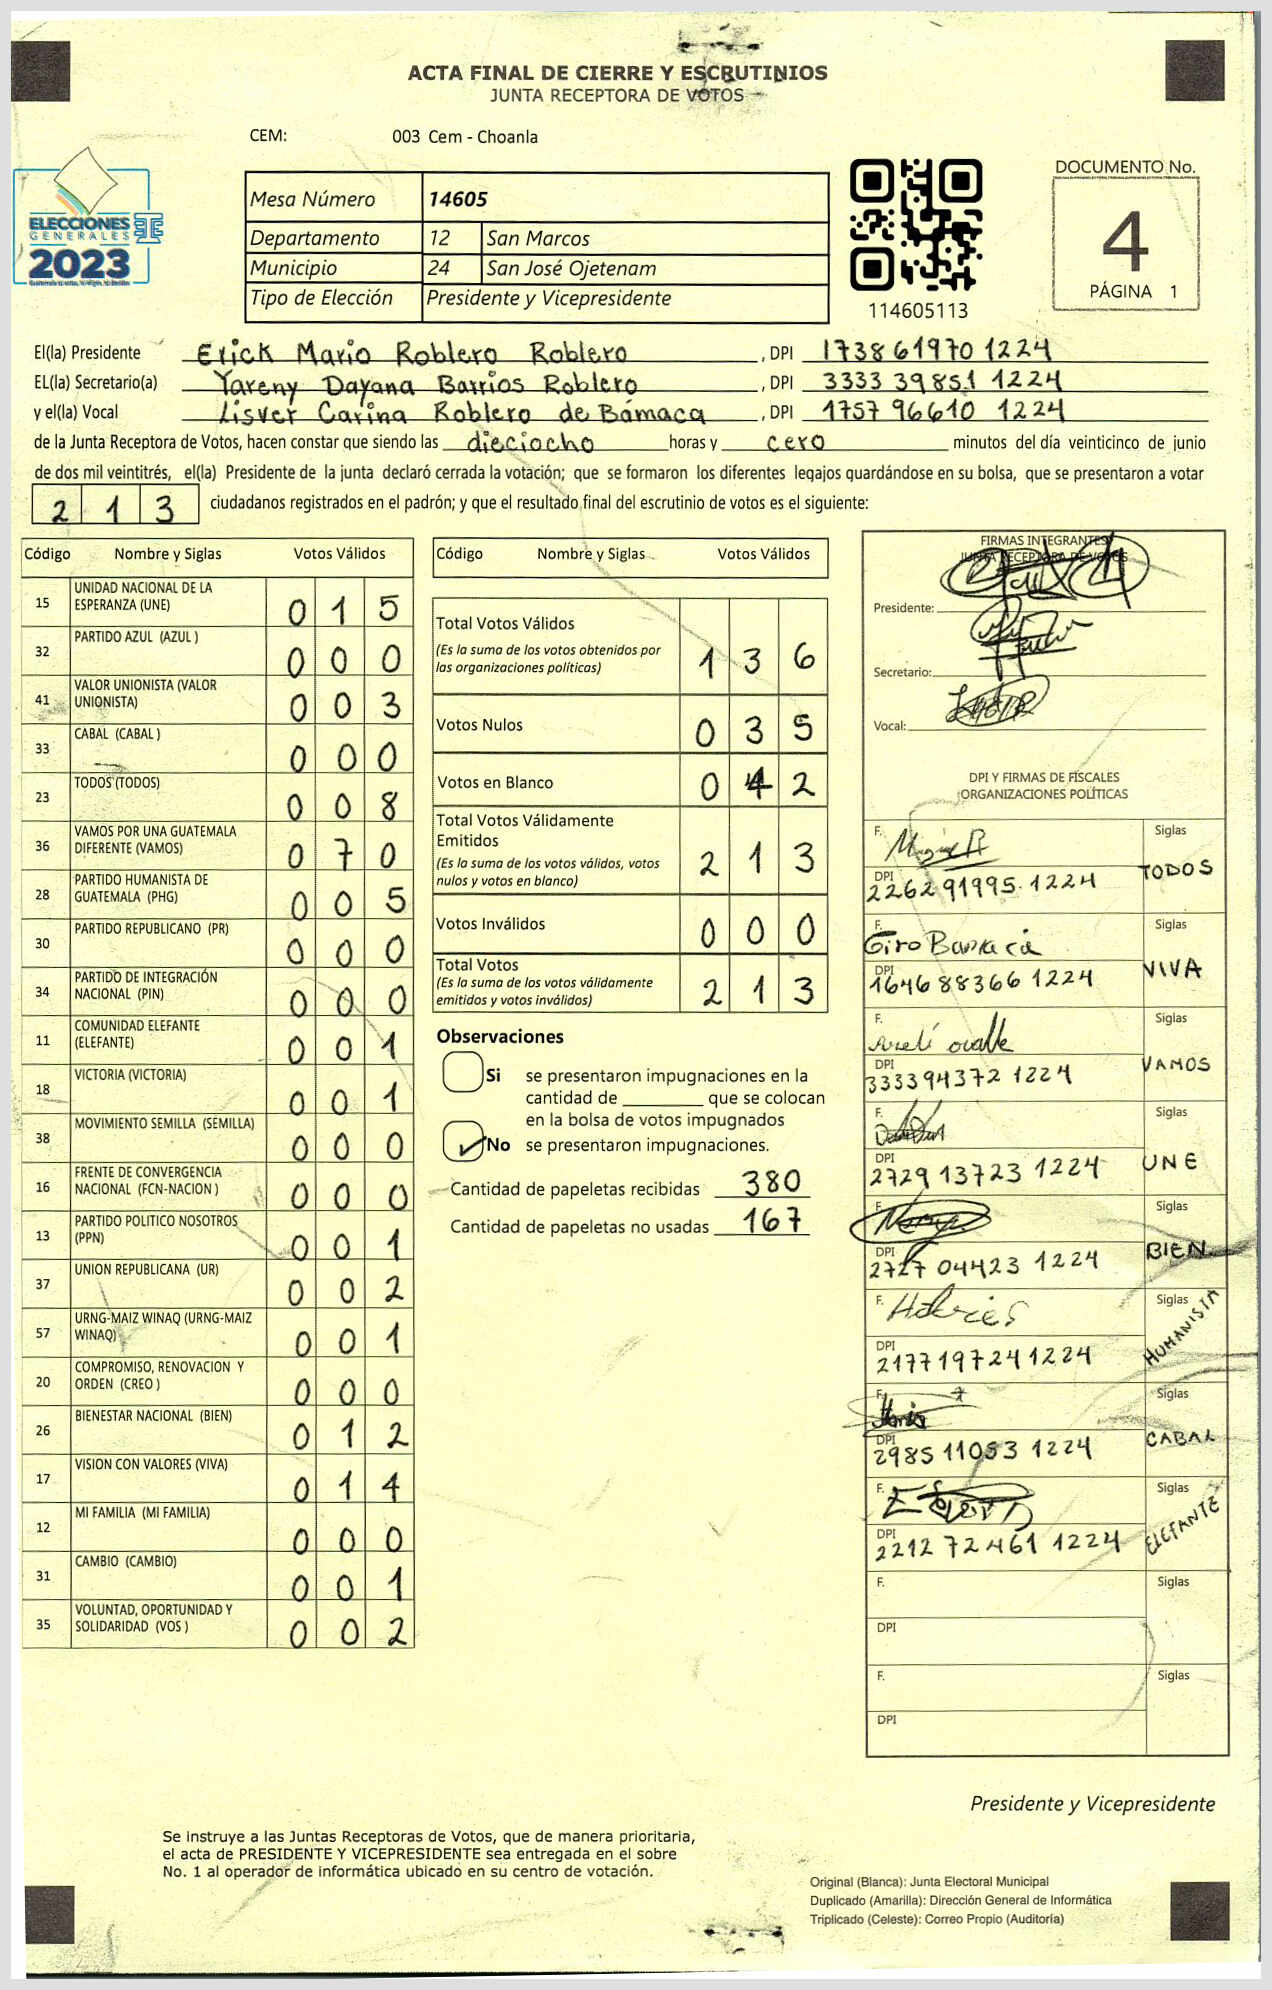 ACTA FINAL DE CIERRE Y ESCRUTINIOS
JUNTA RECEPTORA DE VOTOS
CEM: 003 Cem - Choanla
ELECCIONES
GENERALES
2023
Mesa Número 14605
Departamento 12 San Marcos
Municipio 24 San José Ojetenam
Tipo de Elección Presidente y Vicepresidente
114605113
DOCUMENTO No.
4
PÁGINA 1
El(la) Presidente Erick Mario Roblero Roblero , DPI 173861970 1224
EL(la) Secretario(a) Yareny Dayana Barrios Roblero , DPI 3333 39851 1224
y el(la) Vocal Lisver Carina Roblero de Bámaca , DPI 1757 96610 1224
de la Junta Receptora de Votos, hacen constar que siendo las dieciocho horas y cero minutos del día veinticinco de junio
de dos mil veintitrés, el(la) Presidente de la junta declaró cerrada la votación; que se formaron los diferentes legajos quardándose en su bolsa, que se presentaron a votar
213 ciudadanos registrados en el padrón; y que el resultado final del escrutinio de votos es el siguiente:
Código Nombre y Siglas Votos Válidos
15 UNIDAD NACIONAL DE LA ESPERANZA (UNE) 0 1 5
32 PARTIDO AZUL (AZUL ) 0 0 0
41 VALOR UNIONISTA (VALOR UNIONISTA) 0 0 3
33 CABAL (CABAL ) 0 0 0
23 TODOS (TODOS) 0 0 8
36 VAMOS POR UNA GUATEMALA DIFERENTE (VAMOS) 0 7 0
28 PARTIDO HUMANISTA DE GUATEMALA (PHG) 0 0 5
30 PARTIDO REPUBLICANO (PR) 0 0 0
34 PARTIDO DE INTEGRACIÓN NACIONAL (PIN) 0 0 0
11 COMUNIDAD ELEFANTE (ELEFANTE) 0 0 1
18 VICTORIA (VICTORIA) 0 0 1
38 MOVIMIENTO SEMILLA (SEMILLA) 0 0 0
16 FRENTE DE CONVERGENCIA NACIONAL (FCN-NACION ) 0 0 0
13 PARTIDO POLITICO NOSOTROS (PPN) 0 0 1
37 UNION REPUBLICANA (UR) 0 0 2
57 URNG-MAIZ WINAQ (URNG-MAIZ WINAQ) 0 0 1
20 COMPROMISO, RENOVACION Y ORDEN (CREO ) 0 0 0
26 BIENESTAR NACIONAL (BIEN) 0 1 2
17 VISION CON VALORES (VIVA) 0 1 4
12 MI FAMILIA (MI FAMILIA) 0 0 0
31 CAMBIO (CAMBIO) 0 0 1
35 VOLUNTAD, OPORTUNIDAD Y SOLIDARIDAD (VOS ) 0 0 2
Código Nombre y Siglas Votos Válidos
Total Votos Válidos
(Es la suma de los votos obtenidos por
las organizaciones políticas) 1 3 6
Votos Nulos 0 3 5
Votos en Blanco 0 4 2
Total Votos Válidamente
Emitidos
(Es la suma de los votos válidos, votos
nulos y votos en blanco) 2 1 3
Votos Inválidos 0 0 0
Total Votos
(Es la suma de los votos válidamente
emitidos y votos inválidos) 2 1 3
Observaciones
Si se presentaron impugnaciones en la
cantidad de ________ que se colocan
en la bolsa de votos impugnados
No se presentaron impugnaciones.
Cantidad de papeletas recibidas 380
Cantidad de papeletas no usadas 167
FIRMAS INTEGRANTES
JUNTA RECEPTORA DE VOTOS
Presidente:
Secretario:
Vocal:
DPI Y FIRMAS DE FISCALES
ORGANIZACIONES POLÍTICAS
F. Siglas
DPI 2262 91995 1224 TODOS
F. Siglas
DPI 1646 88366 1224 VIVA
F. Siglas
DPI 333394372 1224 VAMOS
F. Siglas
DPI 2729 13723 1224 UNE
F. Siglas
DPI 2727 04423 1224 BIEN
F. Siglas
DPI 2177197241224 HUMANISTA
F. Siglas
DPI 2985 11053 1224 CABAL
F. Siglas
DPI 2212 72461 1224 ELEFANTE
F. Siglas
DPI
F. Siglas
DPI
Presidente y Vicepresidente
Se instruye a las Juntas Receptoras de Votos, que de manera prioritaria,
el acta de PRESIDENTE Y VICEPRESIDENTE sea entregada en el sobre
No. 1 al operador de informática ubicado en su centro de votación.
Original (Blanca): Junta Electoral Municipal
Duplicado (Amarilla): Dirección General de Informática
Triplicado (Celeste): Correo Propio (Auditoría)